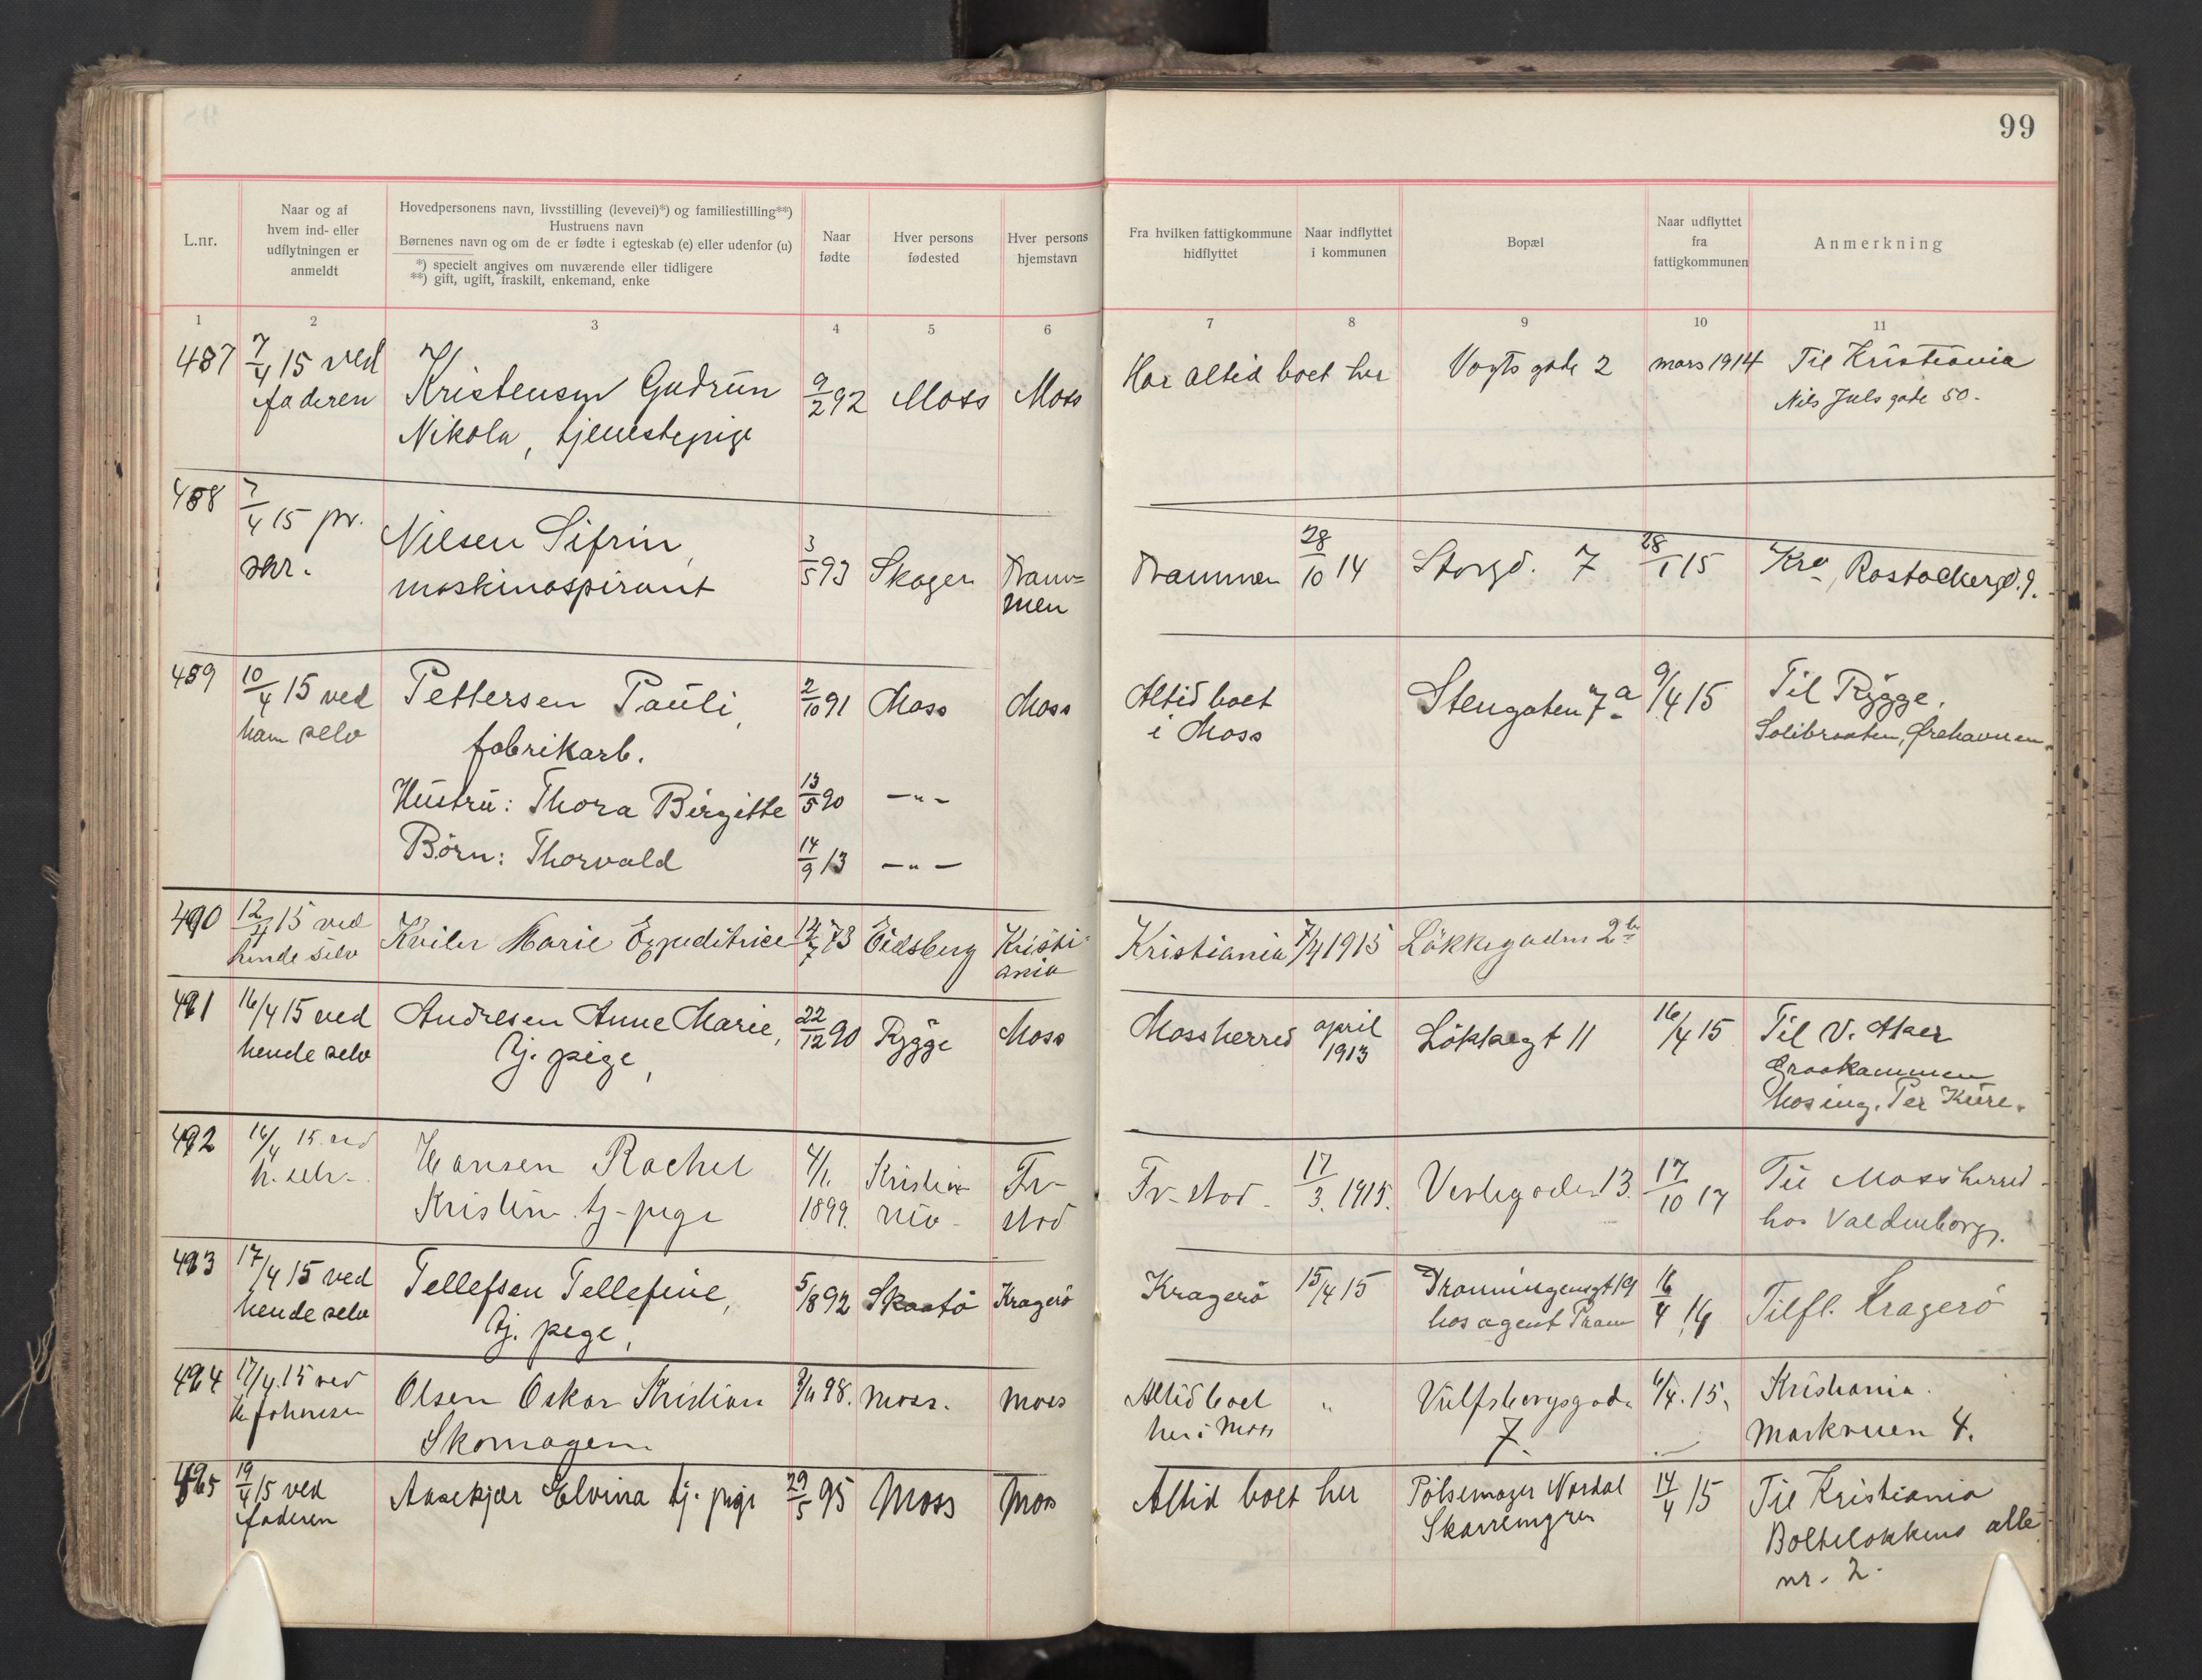 99
L.nr.
Naar og af
hvem ind- eller
udflytningen er
anmeldt
Hovedpersonens navn, livsstilling (levevei)*) og familiestilling**)
Hustruens navn
Børnenes navn og om de er fødte i egteskab (e) eller udenfor (u)
*) specielt angives om nuværende eller tidligere
**) gift, ugift, fraskilt, enkemand, enke
Naar
fødte
Hver persons
fødested
Hver persons
hjemstavn
Fra hvilken fattigkommune
hidflyttet
Naar indflyttet
i kommunen
Bopæl
Naar udflyttet
fra
fattigkommunen
Anmerkning
1 2 3 4 5 6 7 8 9 10 11
487 7/4 15 ved
faderen
Kristensen Gudrun
Nikola, tjenestepige
9/2 92 Moss Moss
Har altid boet her
Vogts gade 2
mars 1914
Til Kristiania
Nils Juls gade 50.
488 7/4 15 pr.
skr.
Nilsen Sifrin,
maskinaspirant
3/5 93 Skoger
Dram=
men
Drammen 28/10 14
Storgd. 7
28/1 15
Kra, Rostockergd. 9.
489 10/4 15 ved
ham selv
Pettersen Pauli,
fabrikarb.
2/10 91 Moss Moss
Hustru: Thora Birgitte 13/5 90 —"—
Børn: Thorvald 14/9 13 —"—
Altid boet
i Moss
Stengaten 7a
9/4 15
Til Rygge,
Solibraaten, Ørehavnen.
490 12/4 15 ved
hende selv
Kviler Marie Expeditrice
12/7 73 Eidsberg
Kristi-
ania
Kristiania 7/4 1915
Løkkegaden 2b
491 16/4 15 ved
hende selv
Andresen Anne Marie,
tj. pige,
22/12 90 Rygge Moss
Mossherred
april
1913
Løkkegt 11
16/4 15
Til V. Aker
Graakammen
hos ing. Per Kure.
492 16/4 15 ved
h. selv.
Hansen Rachel
Kristine tj-pige
4/1.
1899.
Kristia-
nia-
Fr-
stad
Fr-stad 17/3. 1915.
Verlegaden 13.
17/10 17
Til Mossherred
hos
493 17/4 15 ved
hende selv
Tellefsen Tellefine,
tj. pige,
5/8 92 Skaatø Kragerø
Kragerø 15/4 15
Dronningensgt 19
hos agent
16/4 16
Tilfl. Kragerø
494 17/4. 15 ved
Johansen
Olsen Oskar Kristian
Skomagern
98. Moss. Moss
Altid boet
her i Moss
"
Vulfsbergsgade
7.
6/4. 15.
Kristiania.
Markveien 4.
495 19/4 15 ved
faderen
Aasekjær Elvina tj. pige
29/5 95 Moss Moss
Altid boet her
Pølsemager Nordal
Skarremgren
14/4 15
Til Kristiania
Bolteløkkens alle
nr. 2.